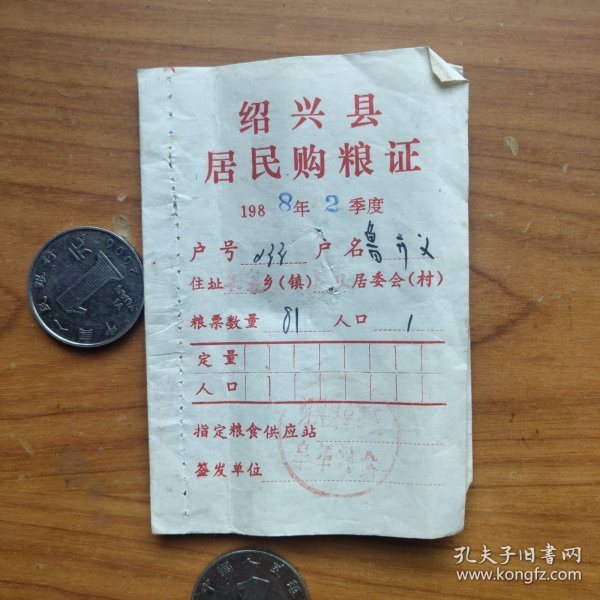 绍兴县
居民购粮证
1988年2季度
户号 户名 鲁
住址 乡(镇) 居委会(村)
粮票数量 81 人口 1
定量
人口
指定粮食供应站
签发单位
孔夫子旧书网
www.kongfz.com